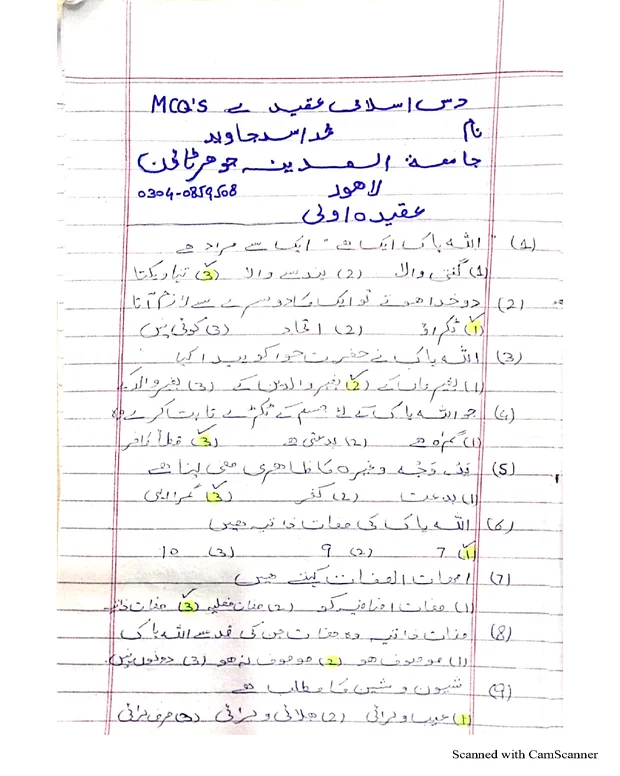 دس اسلامی عقیدے MCQ's
نام محمد اسد جاوید
جامعۃ المدینہ جوہر ٹاؤن
لاہور 0304-0859508
عقیدہ اولی
(1) "اللہ پاک ایک ہے" ایک سے مراد ہے
(1) گنتی والا (2) ہندسے والا (3) تنہا و یکتا
(2) دو خدا ہوتے تو ایک کا دوسرے سے لازم آتا
(1) ٹکراؤ (2) اتحاد (3) کوئی نہیں
(3) اللہ پاک نے حضرت حوا کو پیدا کیا
(1) بغیر ماں کے (2) بغیر والدین کے (3) بغیر والد کے
(4) جو اللہ پاک کے لا جسم کے ٹکڑے ثابت کرے وہ
(1) گمراہ ہے (2) بدعتی ہے (3) قطعاً کافر
(5) ید، وَجْہ وغیرہ کا ظاہری معنی لینا ہے
(1) بدعت (2) کفر (3) گمراہی
(6) اللہ پاک کی صفات ذاتیہ ہیں
(1) 7 (2) 9 (3) 10
(7) امہات الصفات کہتے ہیں
(1) صفات اضافیہ کو (2) صفات فعلیہ (3) صفات ذاتیہ
(8) صفات ذاتیہ وہ صفات جن کی ضد سے اللہ پاک
(1) موصوف ہو (2) موصوف نہ ہو (3) دونوں نہیں
(9) شیون و شین کا مطلب ہے
(1) عیب و برائی (2) بھلائی و برائی (3) صرف برائی
Scanned with CamScanner